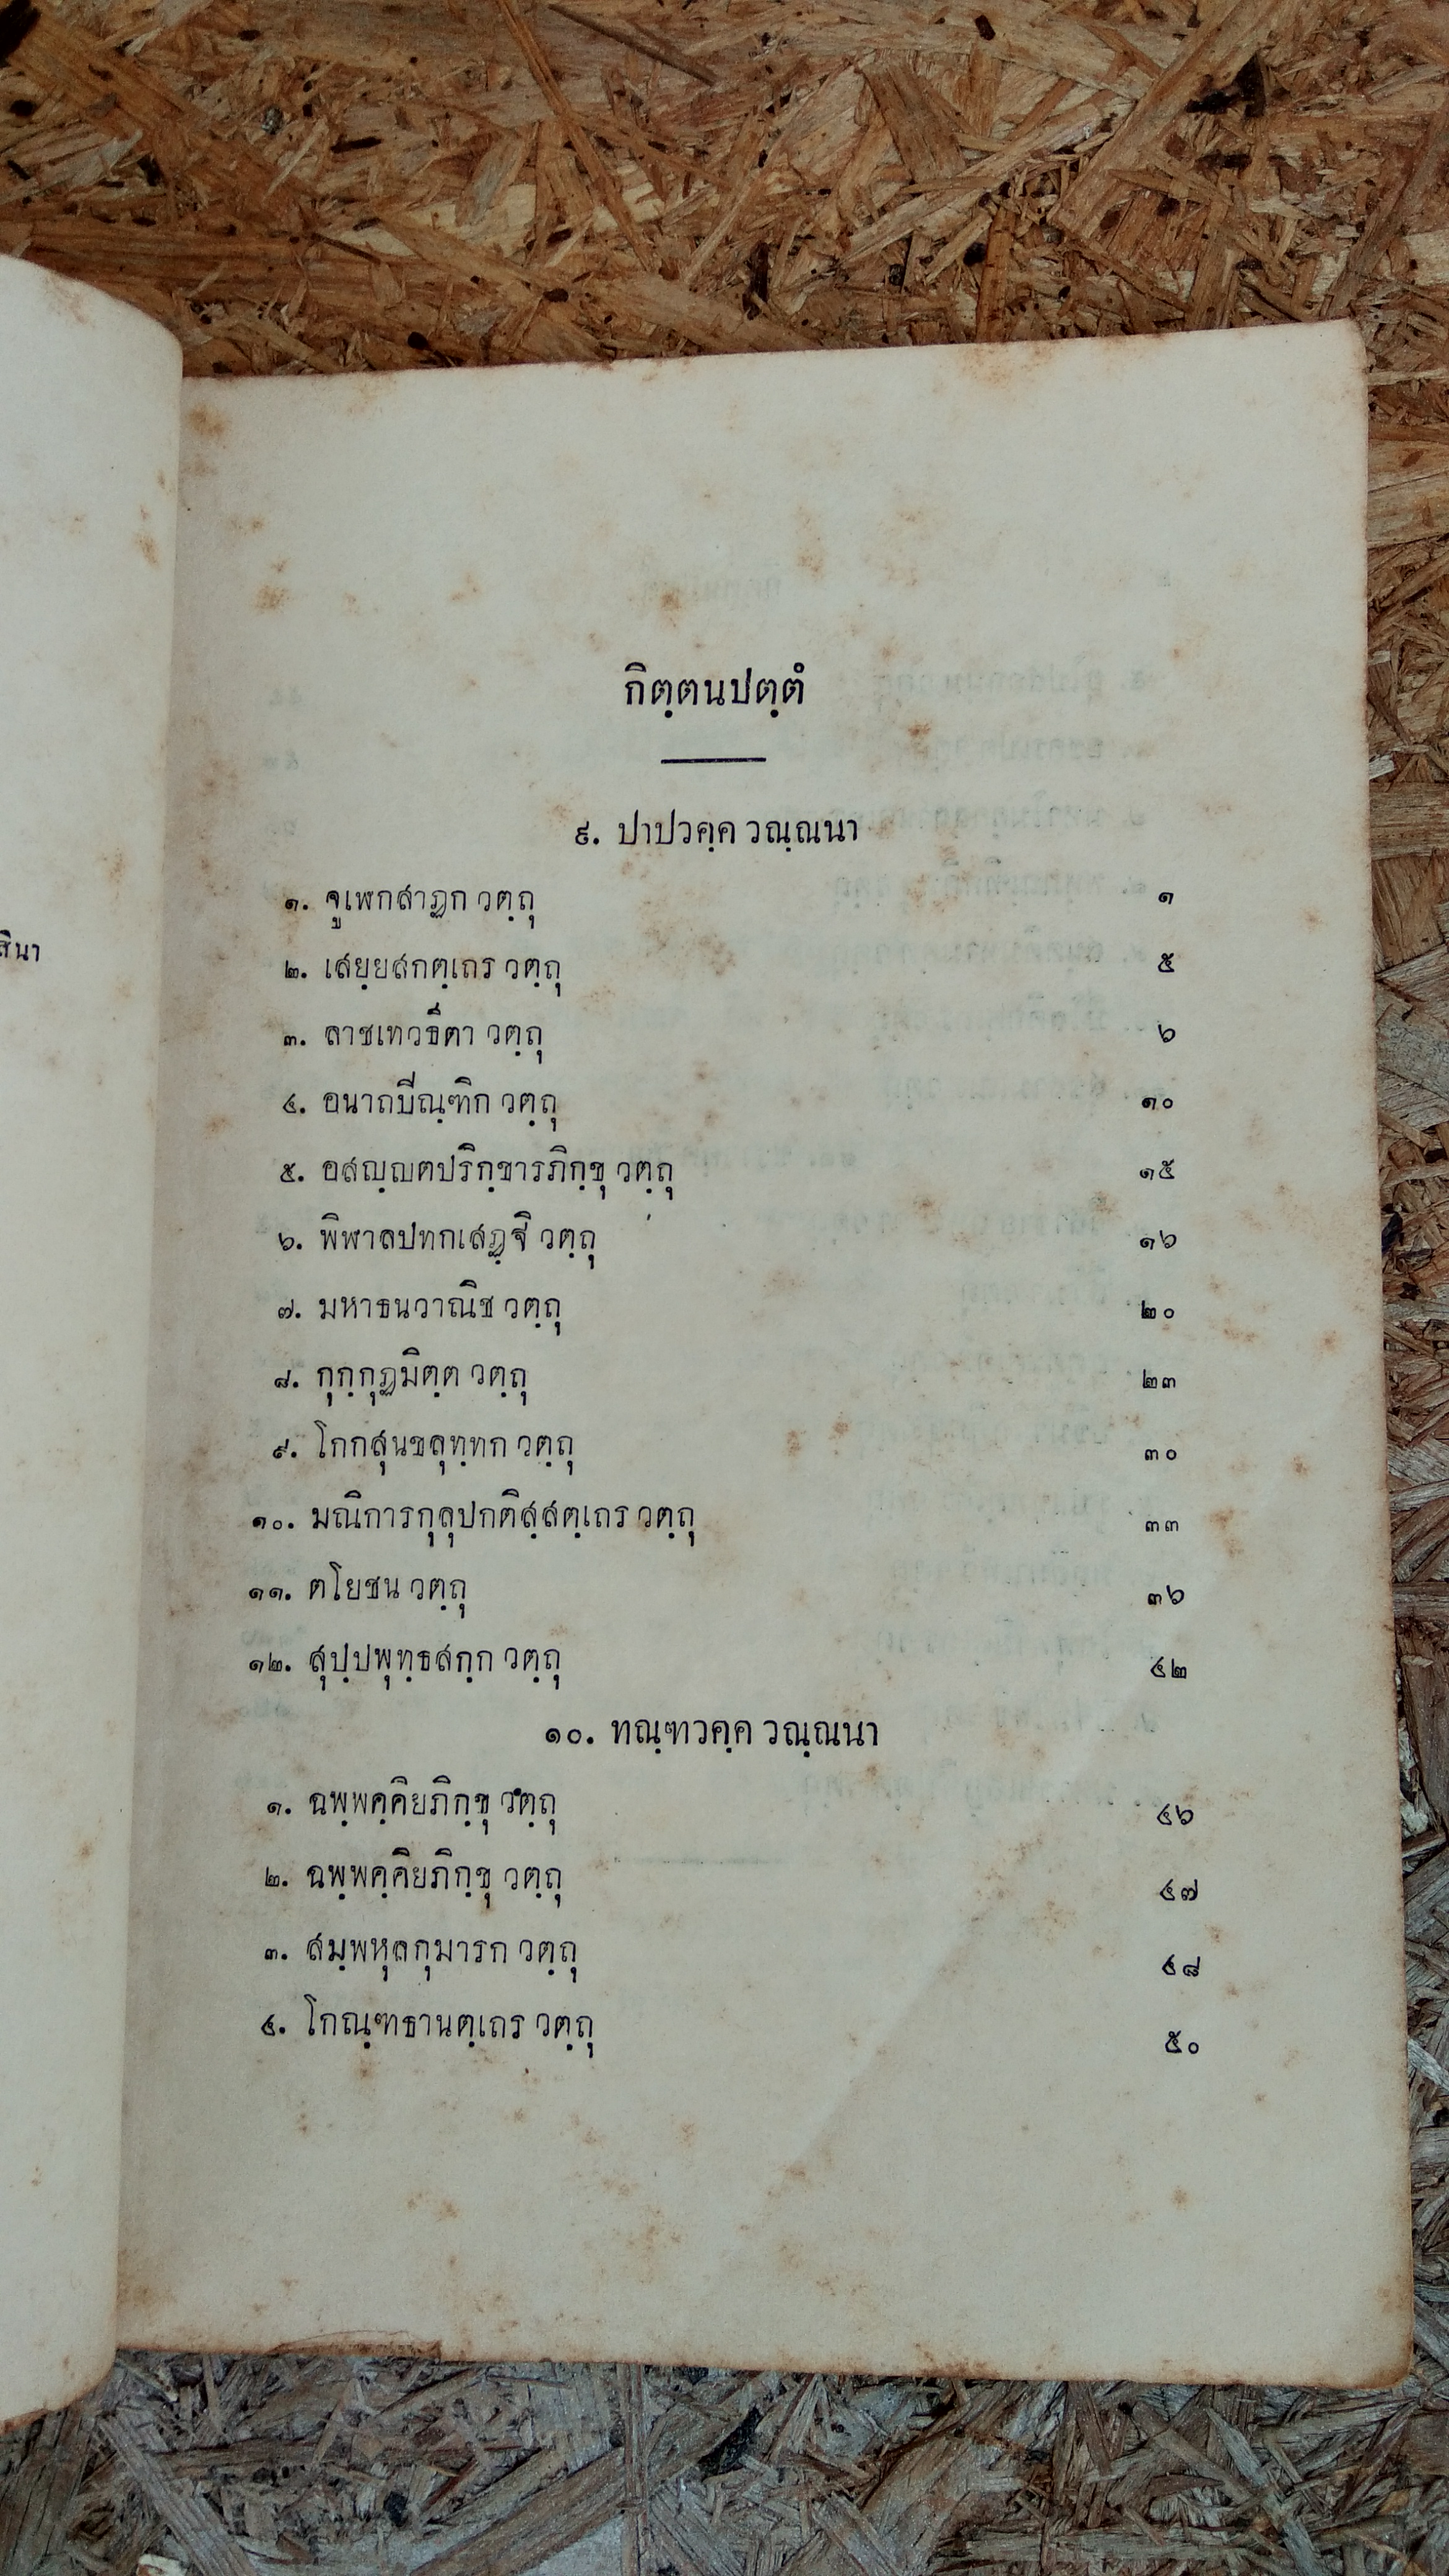 กิตฺตนปตฺตํ
๙. ปาปวคฺค วณฺณนา
๑. จูเฬกสาฏก วตฺถุ ๑
๒. เสยฺยสกตฺเถร วตฺถุ ๕
๓. ลาชเทวธีตา วตฺถุ ๖
๔. อนาถปีณฺฑิก วตฺถุ ๑๐
๕. อสญฺญตปริกฺขารภิกฺขุ วตฺถุ ๑๕
๖. พิฬาลปทกเสฏฺฐี วตฺถุ ๑๖
๗. มหาธนวาณิช วตฺถุ ๒๐
๘. กุกฺกุฏมิตฺต วตฺถุ ๒๓
๙. โกกสุนขลุทฺทก วตฺถุ ๓๐
๑๐. มณิการกุลุปกติสฺสตฺเถร วตฺถุ ๓๓
๑๑. ตโยชน วตฺถุ ๓๖
๑๒. สุปฺปพุทฺธสกฺก วตฺถุ ๔๒
๑๐. ทณฺฑวคฺค วณฺณนา
๑. ฉพฺพคฺคิยภิกฺขุ วตฺถุ ๔๖
๒. ฉพฺพคฺคิยภิกฺขุ วตฺถุ ๔๗
๓. สมฺพหุลกุมารก วตฺถุ ๔๘
๔. โกณฺฑธานตฺเถร วตฺถุ ๕๐